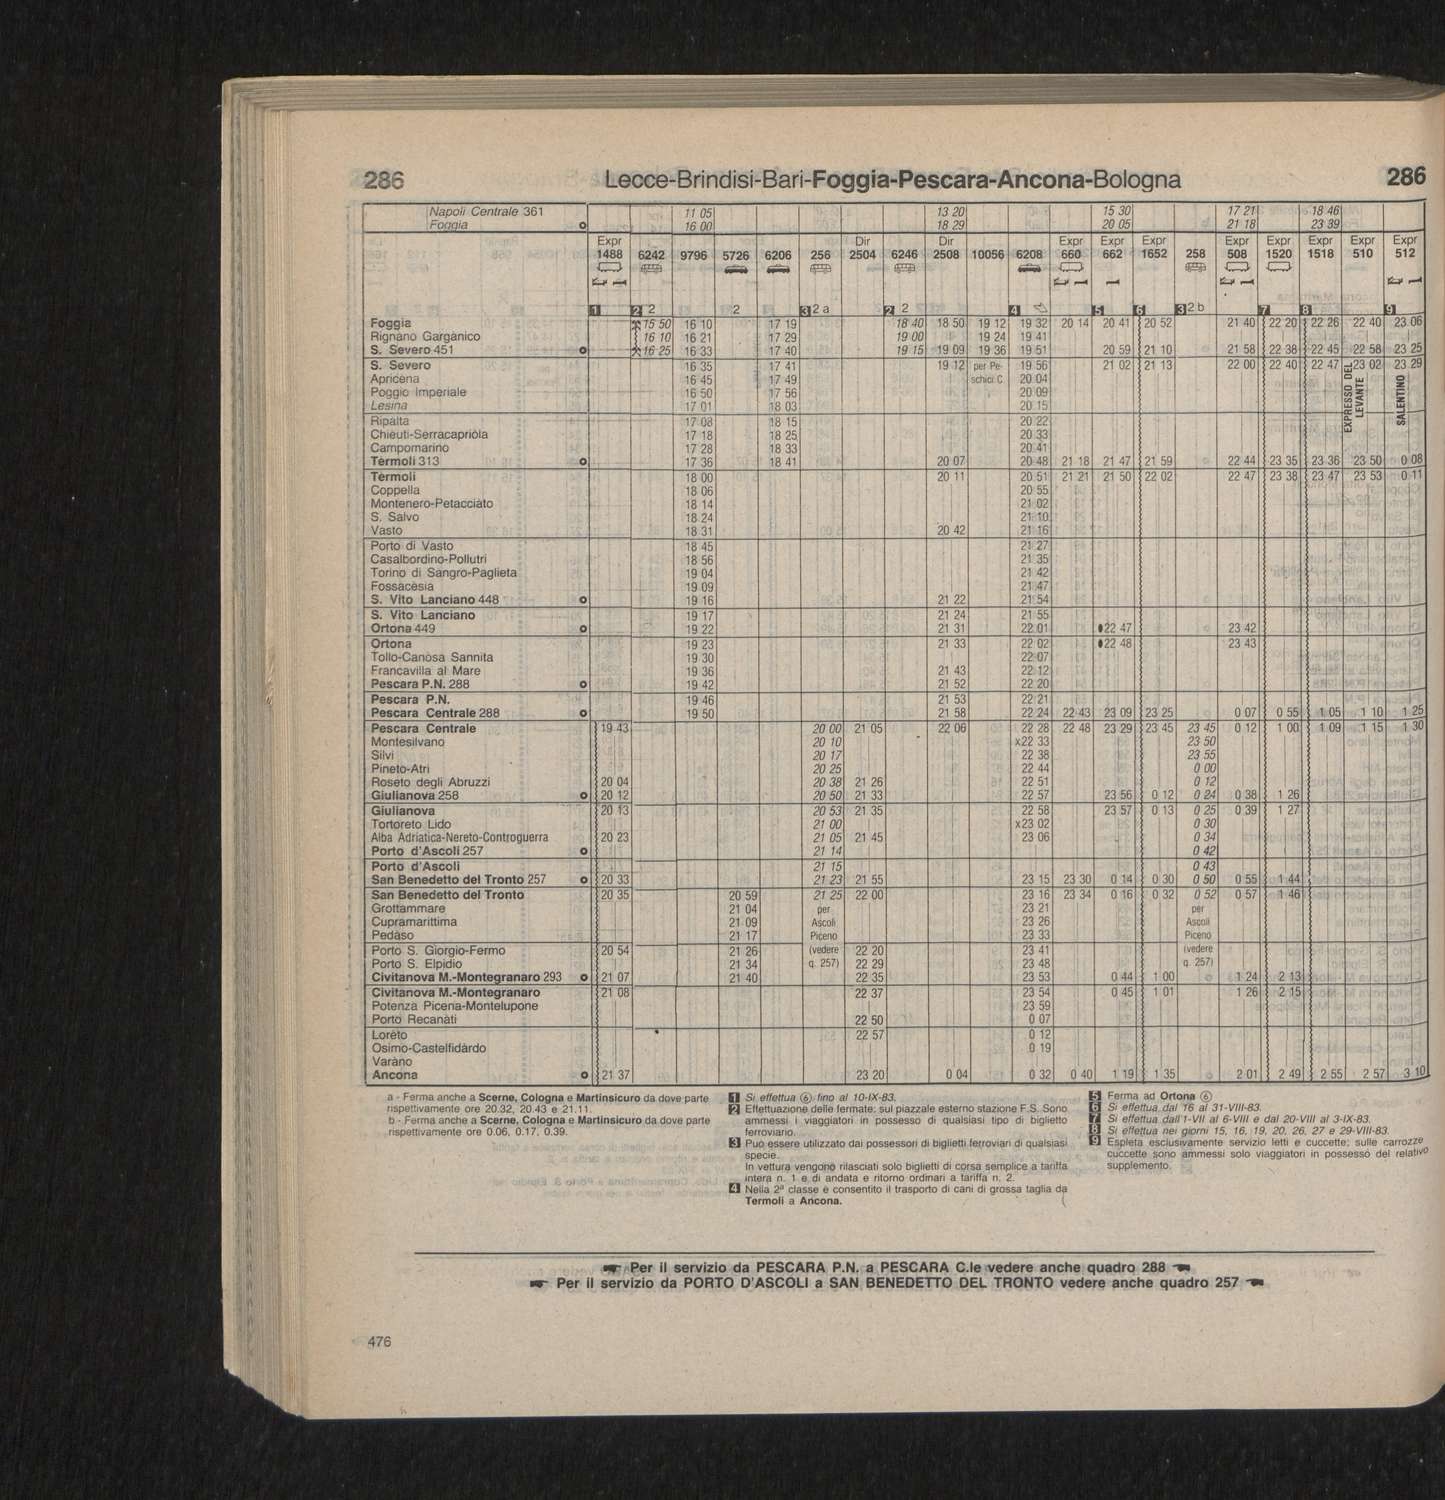 286 Lecce-Brindisi-Bari-Foggia-Pescara-Ancona-Bologna 286
Napoli Centrale 361 11 05 13 20 15 30 17 21 18 46
Foggia 16 00 18 29 20 05 21 18 23 39
Expr Dir Dir Expr Expr Expr Expr Expr Expr Expr Expr
1488 6242 9796 5726 6206 256 2504 6246 2508 10056 6208 660 662 1652 258 508 1520 1518 510 512
1 2 2 2 3 2 a 2 2 4 5 6 3 2 b 7 8 9
Foggia 15 50 16 10 17 19 18 40 18 50 19 12 19 32 20 14 20 41 20 52 21 40 22 20 22 26 22 40 23 06
Rignano Gargànico 16 10 16 21 17 29 19 00 19 24 19 41
S. Severo 451 16 25 16 33 17 40 19 15 19 09 19 36 19 51 20 59 21 10 21 58 22 38 22 45 22 58 23 25
S. Severo 16 35 17 41 19 12 per Pe- 19 56 21 02 21 13 22 00 22 40 22 47 23 02 23 29
Apricena 16 45 17 49 schici C. 20 04
Poggio Imperiale 16 50 17 56 20 09
Lesina 17 01 18 03 20 15
EXPRESSO DEL LEVANTE
SALENTINO
Ripalta 17 08 18 15 20 22
Chièuti-Serracapriòla 17 18 18 25 20 33
Campomarino 17 28 18 33 20 41
Tèrmoli 313 17 36 18 41 20 07 20 48 21 18 21 47 21 59 22 44 23 35 23 36 23 50 0 08
Tèrmoli 18 00 20 11 20 51 21 21 21 50 22 02 22 47 23 38 23 47 23 53 0 11
Coppella 18 06 20 55
Montenero-Petacciàto 18 14 21 02
S. Salvo 18 24 21 10
Vasto 18 31 20 42 21 16
Porto di Vasto 18 45 21 27
Casalbordino-Pollutri 18 56 21 35
Torino di Sangro-Paglieta 19 04 21 42
Fossacèsia 19 09 21 47
S. Vito Lanciano 448 19 16 21 22 21 54
S. Vito Lanciano 19 17 21 24 21 55
Ortona 449 19 22 21 31 22 01 22 47 23 42
Ortona 19 23 21 33 22 02 22 48 23 43
Tollo-Canosa Sannita 19 30 22 07
Francavilla al Mare 19 36 21 43 22 12
Pescara P.N. 288 19 42 21 52 22 20
Pescara P.N. 19 46 21 53 22 21
Pescara Centrale 288 19 50 21 58 22 24 22 43 23 09 23 25 0 07 0 55 1 05 1 10 1 25
Pescara Centrale 19 43 20 00 21 05 22 06 22 28 22 48 23 29 23 45 23 45 0 12 1 00 1 09 1 15 1 30
Montesilvano 20 10 x22 33 23 50
Silvi 20 17 22 38 23 55
Pineto-Atri 20 25 22 44 0 00
Roseto degli Abruzzi 20 04 20 38 21 26 22 51 0 12
Giulianova 258 20 12 20 50 21 33 22 57 23 56 0 12 0 24 0 38 1 26
Giulianova 20 13 20 53 21 35 22 58 23 57 0 13 0 25 0 39 1 27
Tortoreto Lido 21 00 x23 02 0 30
Alba Adriatica-Nereto-Controguerra 20 23 21 05 21 45 23 06 0 34
Porto d'Ascoli 257 21 14 0 42
Porto d'Ascoli 21 15 0 43
San Benedetto del Tronto 257 20 33 21 23 21 55 23 15 23 30 0 14 0 30 0 50 0 55 1 44
San Benedetto del Tronto 20 35 20 59 21 25 22 00 23 16 23 34 0 16 0 32 0 52 0 57 1 46
Grottammare 21 04 per 23 21 per
Cupramarittima 21 09 Ascoli 23 26 Ascoli
Pedàso 21 17 Piceno 23 33 Piceno
Porto S. Giorgio-Fermo 20 54 21 26 (vedere 22 20 23 41 (vedere
Porto S. Elpidio 21 34 q. 257) 22 29 23 48 q. 257)
Civitanova M.-Montegranaro 293 21 07 21 40 22 35 23 53 0 44 1 00 1 24 2 13
Civitanova M.-Montegranaro 21 08 22 37 23 54 0 45 1 01 1 26 2 15
Potenza Picena-Montelupone 23 59
Porto Recanàti 22 50 0 07
Lorèto 22 57 0 12
Osimo-Castelfidàrdo 0 19
Varàno
Ancona 21 37 23 20 0 04 0 32 0 40 1 19 1 35 2 01 2 49 2 55 2 57 3 10
a - Ferma anche a Scerne, Cologna e Martinsicuro da dove parte
rispettivamente ore 20.32, 20.43 e 21.11.
b - Ferma anche a Scerne, Cologna e Martinsicuro da dove parte
rispettivamente ore 0.06, 0.17, 0.39.
1 Si effettua ⑥ fino al 10-IX-83.
2 Effettuazione delle fermate: sul piazzale esterno stazione F.S. Sono
ammessi i viaggiatori in possesso di qualsiasi tipo di biglietto
ferroviario.
3 Può essere utilizzato dai possessori di biglietti ferroviari di qualsiasi
specie.
In vettura vengono rilasciati solo biglietti di corsa semplice a tariffa
intera n. 1 e di andata e ritorno ordinari a tariffa n. 2.
4 Nella 2ª classe è consentito il trasporto di cani di grossa taglia da
Termoli a Ancona.
5 Ferma ad Ortona ⑥
6 Si effettua dal 16 al 31-VIII-83.
7 Si effettua dall'1-VII al 6-VIII e dal 20-VIII al 3-IX-83.
8 Si effettua nei giorni 15, 16, 19, 20, 26, 27 e 29-VIII-83.
9 Espleta esclusivamente servizio letti e cuccette; sulle carrozze
cuccette sono ammessi solo viaggiatori in possesso del relativo
supplemento.
Per il servizio da PESCARA P.N. a PESCARA C.le vedere anche quadro 288
Per il servizio da PORTO D'ASCOLI a SAN BENEDETTO DEL TRONTO vedere anche quadro 257
476